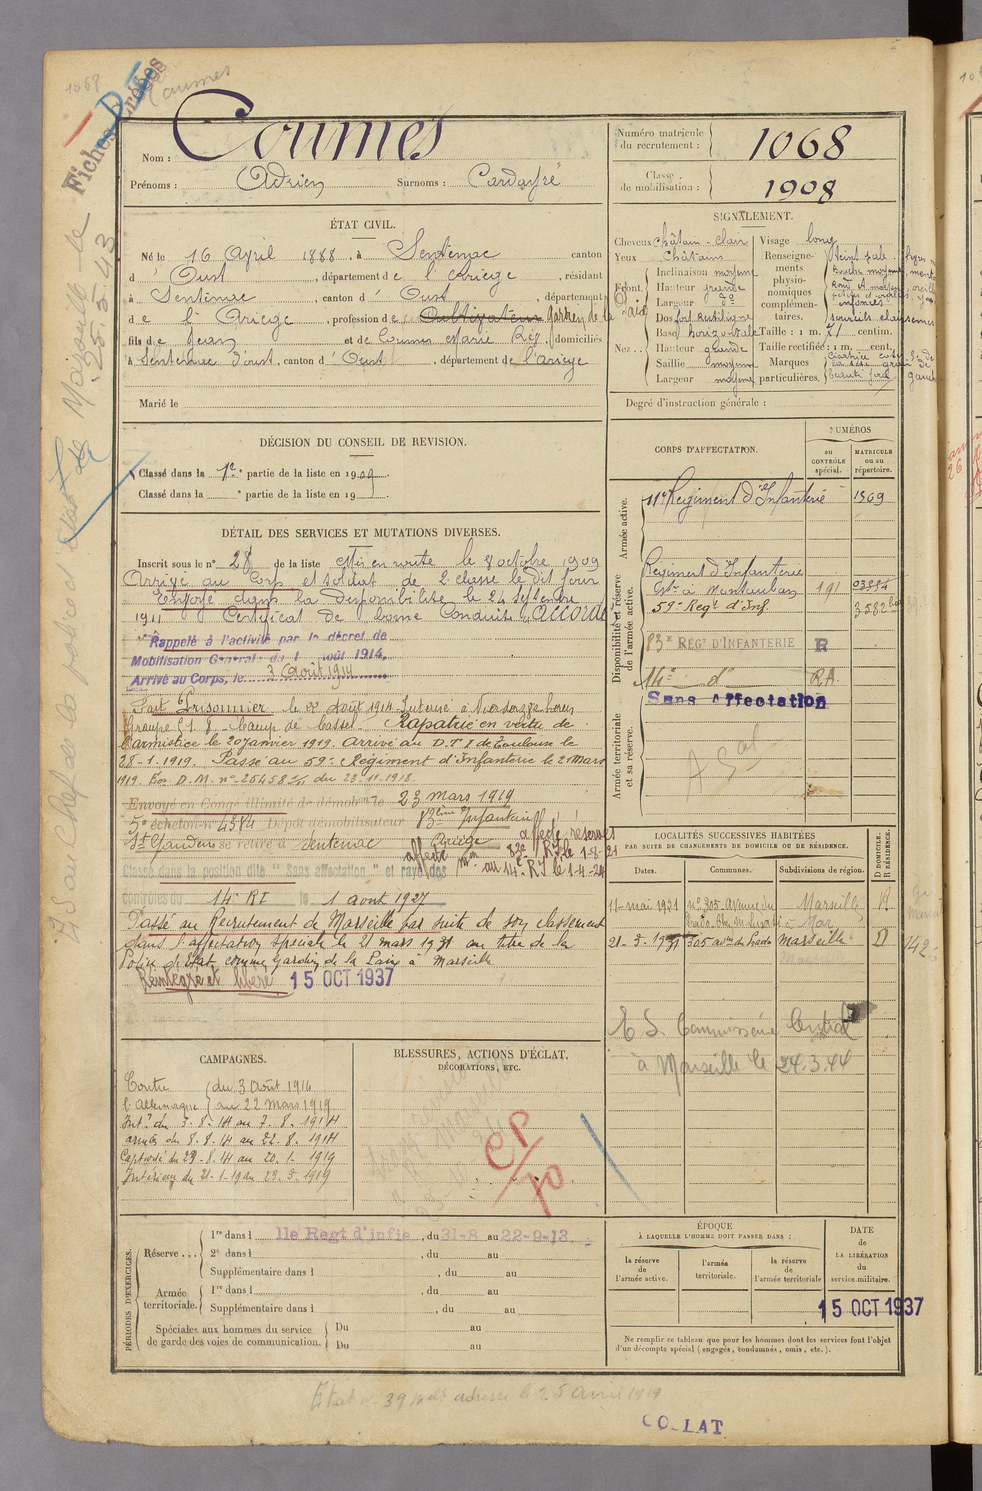 1068
Coumes
Fiches
Nom : Coumes
Prénoms : Adrien Surnoms : Cardayré
Numéro matricule du recrutement : 1068
Classe de mobilisation : 1908
ÉTAT CIVIL.
Né le 16 Avril 1888, à Sentenac canton
d' Oust, département de l'Ariège, résidant
à Sentenac, canton d' Oust, département
de l'Ariège, profession de Cultivateur Gardien de la Paix
fils de Jean et de Coumes Marie domiciliés
à Sentenac d'oust, canton d' Oust, département de l'Ariège
Marié le
SIGNALEMENT.
Cheveux châtain-clair
Yeux châtain
Front. Inclinaison moyenne
Hauteur grande
Largeur do
Nez... Dos fort rectiligne
Base horizontale
Hauteur grande
Saillie moyenne
Largeur moyenne
Visage long
Renseignements physionomiques complémentaires.
Teint pale
Bouche moyenne
sourcils clairsemés
Taille : 1 m. 71 centim.
Taille rectifiée : 1 m. cent.
Marques particulières.
Degré d'instruction générale :
DÉCISION DU CONSEIL DE REVISION.
Classé dans la 1re partie de la liste en 1909
Classé dans la e partie de la liste en 19
DÉTAIL DES SERVICES ET MUTATIONS DIVERSES.
Inscrit sous le n° 28 de la liste Mis en route le 8 octobre 1909
Arrivé au Corp et soldat de 2 classe le dit jour
Envoyé dans la disponibilité le 24 septembre
1911 Certificat de bonne Conduite "ACCORDÉ"
Rappelé à l'activité par le décret de
Mobilisation Générale du 1 août 1914.
Arrivé au Corps, le 3 Août 1914
Fait Prisonnier le 22 Août 1914 Interné à
Camp de Cassel. Rapatrié en vertu de
l'armistice le 20 janvier 1919. Arrivé au D.T.I de Toulouse le
28-1-1919. Passé au 59e Régiment d'Infanterie le 21 mars
1919. D.M. n° 25458 du 23-11-1918.
Envoyé en Congé illimité de démobon le 23 mars 1919
5e échelon n° 4384 Dépôt démobilisateur 83ème Infanterie
St Gaudens se retire à Sentenac Ariège
affecté réserves
affecté 83e RI le 1-8-21
au 14e RI le 1-4-24
Classé dans la position dite "Sans affectation" et rayé des
contrôles du 14e RI le 1 aout 1927
Passé au Recrutement de Marseille par suite de son classement
dans l'affectation spéciale le 21 mars 1931 au titre de la
Police d'Etat comme gardien de la Paix à Marseille
Réintégré et libéré 15 OCT 1937
CORPS D'AFFECTATION.
NUMÉROS
au CONTRÔLE spécial.
MATRICULE ou au répertoire.
Armée active.
11e Régiment d'Infanterie 1969
Disponibilité et réserve de l'armée active.
Régiment d'Infanterie
Montauban 191
59e Regt d'Inf. 3582
83e RÉGt D'INFANTERIE R
14e do RA
Sans Affectation
Armée territoriale et sa réserve.
LOCALITÉS SUCCESSIVES HABITÉES
PAR SUITE DE CHANGEMENTS DE DOMICILE OU DE RÉSIDENCE.
Dates. Communes. Subdivisions de région. D DOMICILE. R RÉSIDENCE.
11-mai 1931 n° 305 Avenue du Prado Marseille R
21-3-1931 305 avue du Prado Marseille D
Commissaire Central
à Marseille le 24.3.44
CAMPAGNES.
Contre l'Allemagne du 3 Août 1914
au 22 mars 1919
Intr du 3-8-14 au 7-8-1914
armées du 8-8-14 au 22-8-1914
Captivité du 23-8-14 au 20-1-1919
Intérieur du 21-1-19 au 23-3-1919
BLESSURES, ACTIONS D'ÉCLAT.
DÉCORATIONS, ETC.
CP/70
PÉRIODES D'EXERCICES.
Réserve... 1re dans l 11e Regt d'infie, du 31-8 au 22-9-13
2e dans l , du au
Supplémentaire dans l , du au
Armée territoriale. 1re dans l , du au
Supplémentaire dans l , du au
Spéciales aux hommes du service de garde des voies de communication. Du au
Du au
ÉPOQUE
À LAQUELLE L'HOMME DOIT PASSER DANS :
la réserve de l'armée active.
l'armée territoriale.
la réserve de l'armée territoriale
DATE de LA LIBÉRATION du service militaire.
15 OCT 1937
Ne remplir ce tableau que pour les hommes dont les services font l'objet
d'un décompte spécial (engagés, condamnés, omis, etc.).
Etat n° 39 adressé le 25 avril 1919
COLLAT